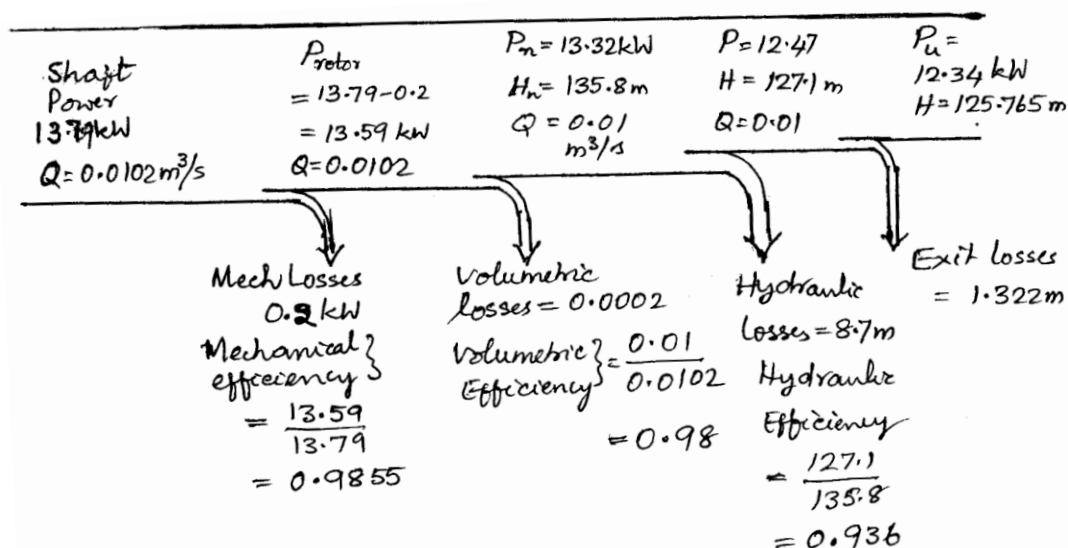 Shaft
Power
13.79kW
Q=0.0102m³/s
Protor
= 13.79-0.2
= 13.59 kW
Q=0.0102
Pn=13.32kW
Hn=135.8m
Q=0.01
m³/s
P=12.47
H=127.1m
Q=0.01
Pu=
12.34 kW
H=125.765m
Mech Losses
0.2 kW
Mechanical }
efficiency }
= 13.59
13.79
= 0.9855
Volumetric
losses = 0.0002
Volumetric } = 0.01
Efficiency } 0.0102
= 0.98
Hydraulic
Losses=8.7m
Hydraulic
Efficiency
= 127.1
135.8
= 0.936
Exit losses
= 1.322m